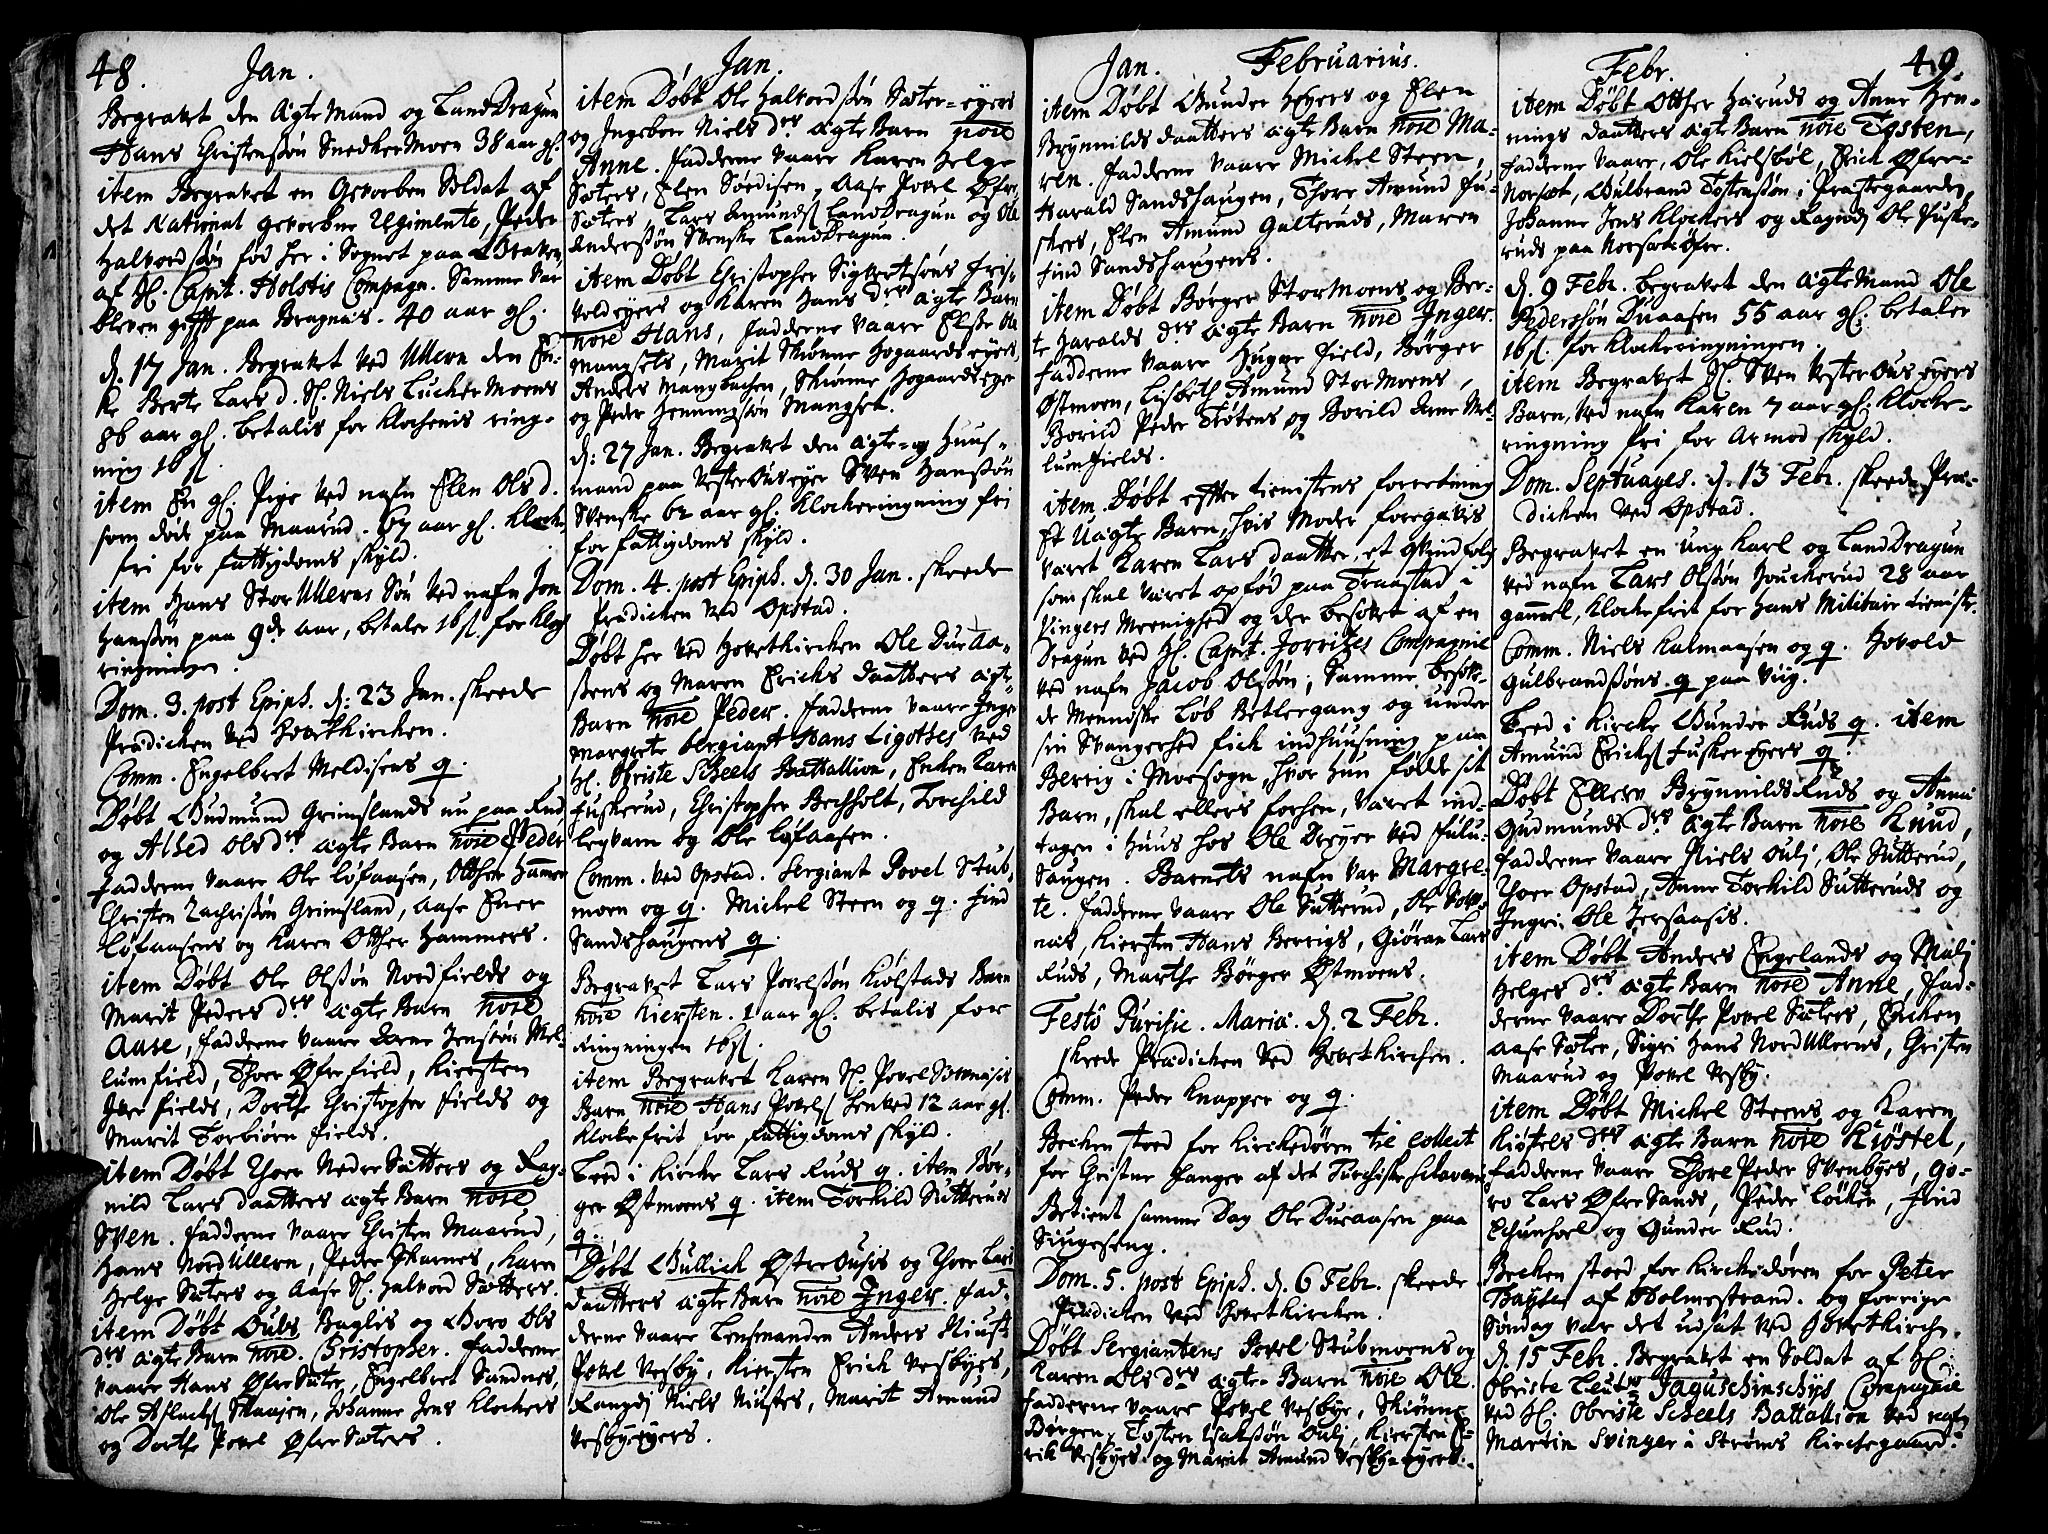 48.
Jan.
Begravet den ægte Mand og LandDragun
Hans Christenssøn SnedkerMoen 38 aar gl.
item Begravet en Gevorben Soldat af
det National gevorbne Regimente, Peder
Halvordssøn fød her i Sognet paa Braten
af H. Capit. Holstis Compagn. Samme var
bleven gifft paa Bragnæs. 40 aar gl.
d. 17 Jan. Begravet ved Ullern den En-
ke Berte Lars d. Sl. Niels Lucker Moens
86 aar gl. betalis for klockenis ring-
ning 16 s.
item En gl. Pige ved nafn Elen Ols d.
som døde paa Maarud. 67 aar gl. klock
fri for fattigdoms skyld.
item Hans Stor Ullerns Søn ved nafn Jon
Hanssøn paa 9de aar, betaler 16 s. for klock
ringningen.
Dom. 3. post Epiph. d: 23 Jan. skeede
Prædicken ved Hovetkircken.
Comm. Engelbret Meldisens q.
Døbt Gudmund Grimslands nu paa Rud
og Alhed Ols drs ægte Barn noie Peder
fadderne vaare Ole Løfaasen, Otther Hammer
Christen Zachrissøn Grimsland, Aase Ener
Løfaasens og Karen Otther Hammers.
item Døbt Ole Olssøn Nordfields og
Marit Peders drs ægte Barn noie
Aase, fadderne vaare Arne Jenssøn Mel-
lumfield, Thoer Øfrefield, Kiersten
Iver fields, Dorthe Christopher fields og
Marit Torbiørn fields.
item Døbt Thoer Nedre Sætters og Rag-
nild Lars daatters ægte Barn noie
Sven. fadderne vaare Christen Maarud,
Hans Nord Ullern, Peder Skarnes, Karen
Helge Sæters og Aase Sl. Halvord Sætters.
item Døbt Ouls Baglis og Goro Ols
drs ægte Barn noie. Christopher. fadderne
vaare Hans Øfre Sæter, Engelbret Sandnes,
Ole Aslachs Skaasen, Johanne Jens Klockers
og Dorthe Povel Øfre Sæters.
Jan.
item Døbt Ole Halvordssøn Sæter-eyers
og Ingebor Niels drs ægte Barn noie
Anne. fadderne vaare Karen Helge
Sæters, Elen Sørdisen, Aase Povel Øfre
Sæters, Lars Amunds LandDragun og Ole
Anderssøn Svenske LandDragun.
item Døbt Christopher Sigvortssøns Fris-
veldeyers og Karen Hans drs ægte Barn
noie Hans, fadderne vaare Else Ole
Mangsets, Marit Skiønne Hogaards eyers,
Anders Mangbachen, Skiønne Hogaardseye
og Peder Hemmingssøn Mangset.
d: 27 Jan. Begravet den ægte- og Huus-
mand paa Vester Ous eyer Sven Hanssøn
Svenske 62 aar gl. Klockeringning fri
for fattigdoms skyld.
Dom. 4. post Epiph. d. 30 Jan. skeede
Prædicken ved Opstad.
Døbt her ved Hovetkircken Ole Dueaa-
sens og Maren Erichs daatters ægte
Barn noie Peder. fadderne vaare Inge
Margrete Sergiant Hans Ligottes ved
H. Obriste Scheels Battallion, Encken Karen
Fuskerud, Christopher Bechholt, Torchild
Legvam og Ole Løfaasen.
Comm. ved Opstad. Sergiant Povel Stub-
moen og q. Michel Steen og q. find
Sandshaugens q.
Begravet Lars Povelssøn Kiølstads Barn
noie Kiersten. 1 aar gl. betalis for
Ringningen 16 s.
item Begravet Karen Sl. Povel
Barn noie Hans Povels 12 aar gl.
Klockefrit for fattigdoms skyld.
Leed i Kircke Lars Ruds q. item Bør-
ger Østmoens q. item Torkild Sutteruds
q.
Døbt Gullich Østre Ousis og Thore Lars
daatters ægte Barn noie Inger. Fad-
derne vaare Lensmanden Anders Niust
Povel Vesby, Kiersten Erich Vesbyes,
Rangdi Niels Niustes, Marit Amund
Vesbyeyers.
Jan.
Februarius.
item Døbt Gunder Høyers og Elen
Brynnilds daatters ægte Barn noie Ma-
ren. fadderne vaare Michel Steen,
Harald Sandshaugen, Thore Amund Fu-
skers, Elen Amund Galteruds, Maren
find Sandshaugens.
item Døbt Børger StorMoens og Ber-
te Haralds drs ægte Barn noie Inger.
fadderne vaare Hugne field, Børger
Østmoen, Lisbeth Amund StorMoens,
Borild Peder Tøtens og Borild Arne Mel-
lumfields.
item Døbt effter tienistens forretning
Et Uægte Barn, hvis Moder foregavis
været Karen Lars daatter, et qvindfolck
som skal været opfød paa Traastad i
Vingers Meenighed og der besovet af en
Dragun ved H. Capit. Jorrizes Compagnie
ved nafn Jacob Olssøn; Samme besov-
de Menniske løb Betlergang og under
sin Svangerhed fick indhuusning paa
Berrig i Moesogn, hvor hun fødde sit
Barn, skal ellers forhen været ind-
tagen i huus hos Ole Dreyer ved Fulu-
haugen. Barnets nafn var Margre-
te. fadderne vaare Ole Sutterud, Ole
næs, Kiersten Hans Berrigs, Giøran Lars
Ruds, Marthe Børger Østmoens.
Festô Purific. Mariæ. d. 2 Febr.
skeede Prædicken ved Hovetkirchen.
Comm. Peder Knapper og q.
Becken stoed for Kirckedøren til Collect
for Christne Fanger af det Turchiske Slaverie
Betient samme Dag Ole Dueaasen paa
Siugeseng.
Dom. 5. post Epiph. d. 6 Febr. skeede
Prædicken ved Hovetkircken.
Døbt Sergiantens Povel Stubmoens og
Karen Ols drs ægte Barn noie Ole.
fadderne vaare Povel Vesbye, Skiønne
Børgen, Tosten Isakssøn Ouli, Kiersten E-
rik Vesbyes og Marit Amund Vesbyeeyers.
Febr.
49.
item Døbt Otther Haruds og Anne Hen-
nings daatters ægte Barn noie Tosten,
fadderne vaare, Ole Kielsbøl, Erich Øfre-
Norset, Gulbrand Tostenssøn i Præstegaarden,
Johanne Jens Klockers og Ragndi Ole Fuske-
ruds paa Norsetøfre.
d. 9 Febr. begravet den ægte Mand Ole
Pederssøn Dueaasen 55 aar gl. betaler
16 s. for klockeringningen.
item Begravet Sl. Sven Vester Ous eyers
Barn, ved nafn Karen 7 aar gl. Klocke-
ringning fri for armod skyld.
Dom. Septuages. d. 13 Febr. skeede Præ-
dicken ved Opstad.
Begravet en ung Karl og LandDragun
ved nafn Lars Olssøn Houckerud 28 aar
gammel, klockefrit for hans Militaire tieniste.
Comm. Niels Kalmaasen og q. Hovold
Gulbrandssøns q paa Viig.
Leed i Kircke Gunder Ruds q. item
Amund Erichs Fusker eyers q.
Døbt Ellerv Brynnildsruds og Anne
Gudmunds drs ægte Barn noie Knud,
fadderne vaare Niels Ouli, Ole Sutterud,
Thoer Opstad, Anne Torkild Sutteruds og
Ingri Ole Jersaasis.
item Døbt Anders Engelands og Mali
Helges drs ægte Barn noie Anne, fad-
derne vaare Dorthe Povel Sæters, Encken
Aase Sæter, Sigri Hans Nord Ullerns, Christen
Maarud og Povel Vesby.
item Døbt Michel Steens og Karen
Kiøstels drs ægte Barn noie Kiøstel,
fadderne vaare Thore Peder Svenbyes, Go-
ro Lars Øfre Sands, Peder Løken, find
og Gunder Rud.
Becken stoed for Kirckedøren for Peter
af Holmestrand. og forrige
Søndag var det udsat ved Hovetkirchen.
d. 15 Febr. Begravet en Soldat af H.
Obriste Leutn Jaguschinschys Compagnie
ved H. Obriste Scheels Battallion ved nafn
Martin Svinger â Strøms Kirckegaard.